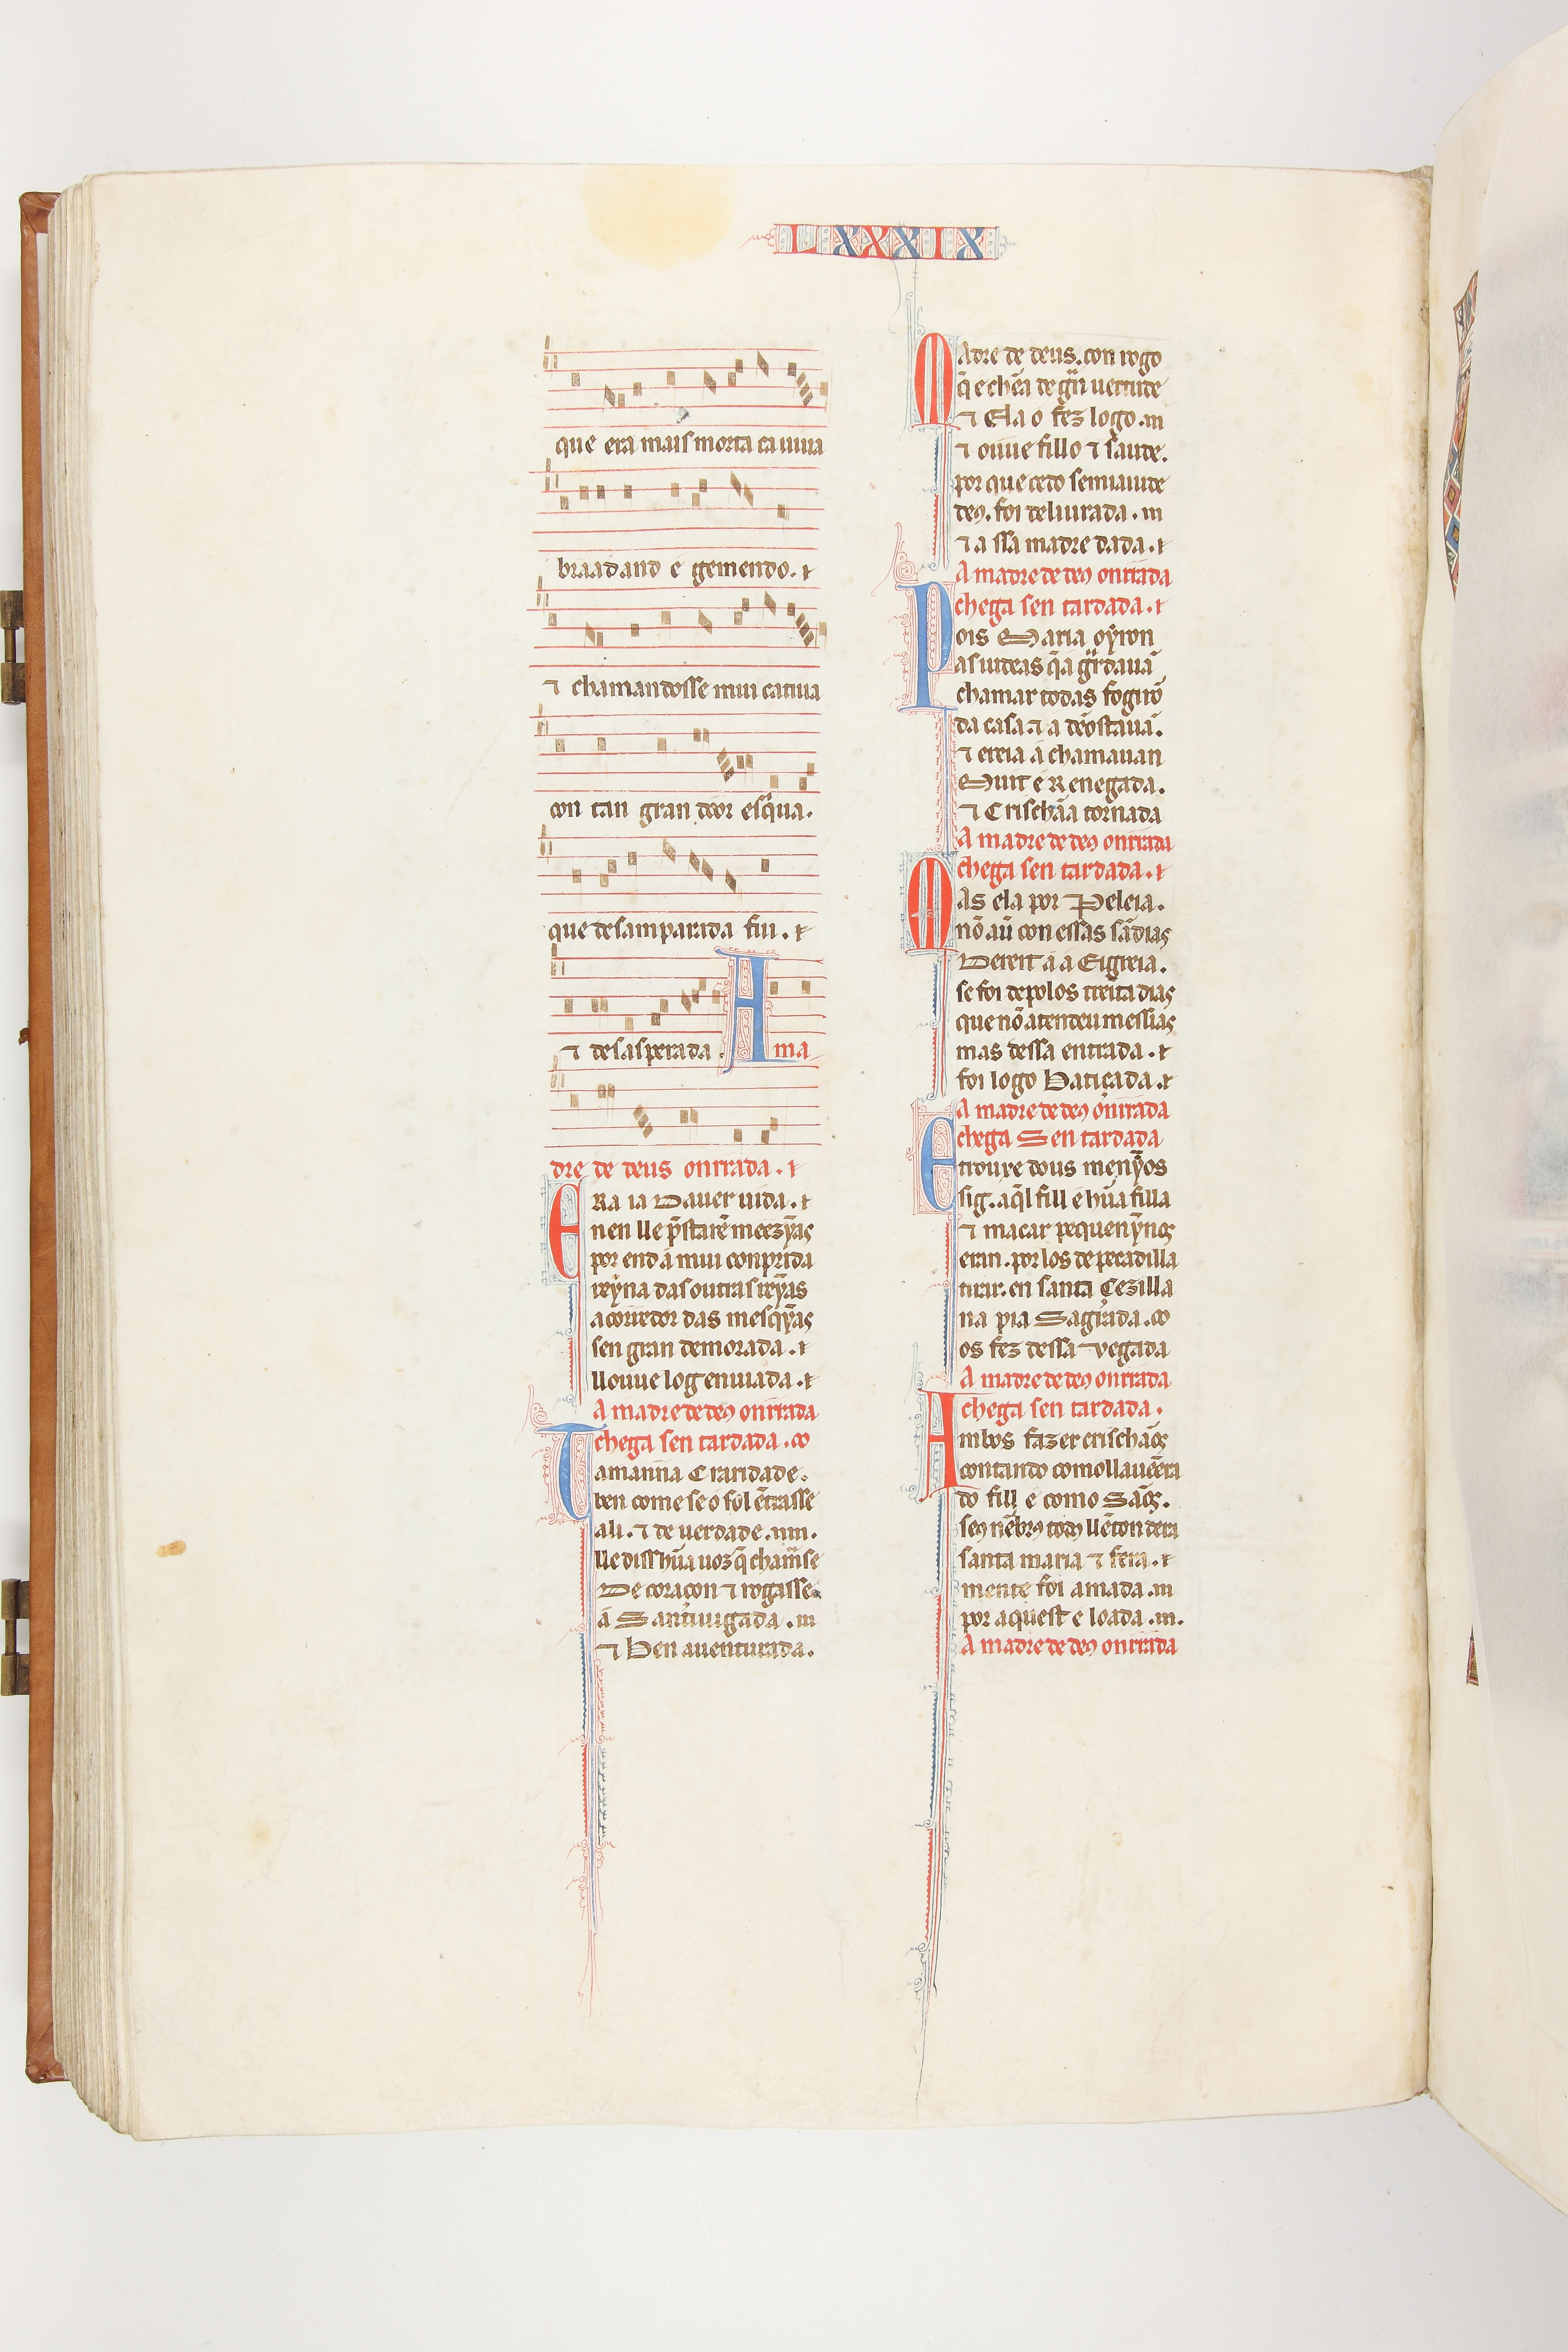 LXXXIX
que era mais morta ca uiua
braadand é gemendo. ⁊
⁊ chamandosse mui catiua
con tan gran door esq̃ua.
que desamparada fui. ⁊
⁊ desasperada. A ma
dre de deus onrrada. ⁊
ERa ia Dauer uida. ⁊
nen lle p̃starẽ meezỹas
por end á mui conprida
reỹna das outras reỹas
acorredor das mesq̃ỹas
sen gran demorada. ⁊
llouue log enuiada. ⁊
A madre de deꝯ onrrada
chega sen tardada. co
Tamanna Craridade.
ben come se o sol ẽtrasse
ali. ⁊ de uerdade. nin.
lle diss hũa uoz q̃ chamasse
De coraçon ⁊ rogasse
á Santiuigada. m
⁊ Ben auenturada.
Madre de deus. con rogo
q̃ e chẽa de gñ uertude
⁊ Ela o fez logo. m
⁊ ouue fillo ⁊ saude.
por que cedo sen iaiude
deꝯ. foi deliurada. m
⁊ a ssa madre dada. ⁊
A madre de deꝯ onrrada
chega sen tardada. ⁊
Pois Maria oỹron
as iudeas q̃ a gardauã
chamar todas fogirõ
da casa. ⁊ a dẽostauã.
⁊ ereia á chamauan
Muit é Renegada.
⁊ Crischãa tornada
A madre de deꝯ onrrada
chega sen tardada. ⁊
Mas ela por Peleia.
nõ aũ con essas sãdias
Dereit á a Eigreia.
se foi depolos treita dias
que nõ atendeu messias
mas dessa entrada. ⁊
foi logo Batiçada. ⁊
A madre de deꝯ onrrada
chega Sen tardada
E trouxe dous menỹos
sig. aq̃l fill é hũa filla
⁊ macar pequenỹnos
eran. por los de pecadilla
tirar. en santa Cezilla
na pia Sagrada. co
os fez dessa vegada
A madre de deꝯ onrrada
chega sen tardada.
Ambos fazer crischãos
contando comoll auẽera
do fill é como Sãos.
seꝯ nẽbrꝯ todꝯ llẽ tondera
santa maria ⁊ fera. ⁊
mente foi amada. m
por aquest e loada. m.
A madre de deꝯ onrrada